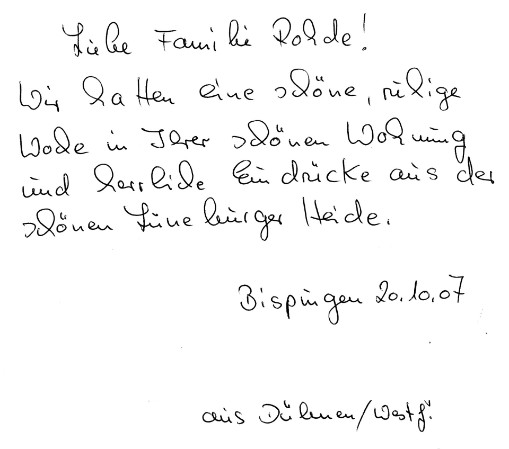 Liebe Familie Rohde!
Wir hatten eine schöne, ruhige
Woche in Ihrer schönen Wohnung
und herrliche Eindrücke aus der
schönen Lüneburger Heide.
Bispingen 20.10.07
aus Dülmen/Westf.